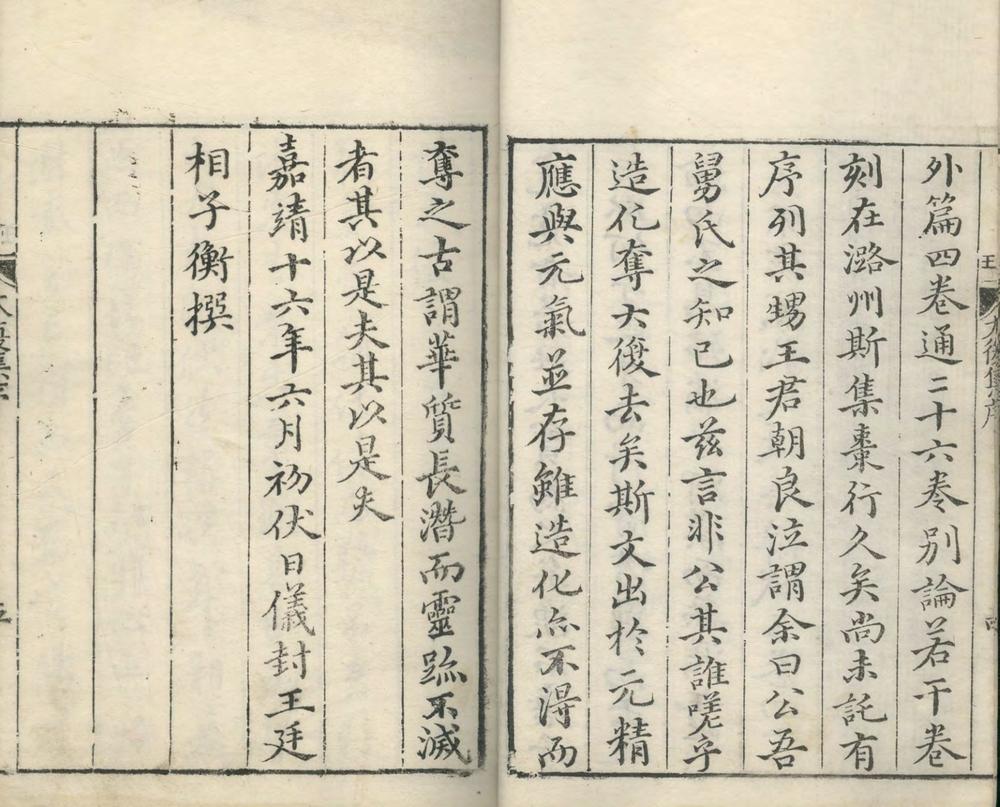 外篇四卷通二十六卷別論若干卷
刻在潞州斯集棗行久矣尚未託有
序列其甥王君朝良泣謂余曰公吾
舅氏之知己也茲言非公其誰嘆乎
造化奪大復去矣斯文出於元精
應與元氣並存雖造化亦不得而
奪之古謂華質長潛而靈跡不滅
者其以是夫其以是夫
嘉靖十六年六月初伏日儀封王廷
相子衡撰
大復集序